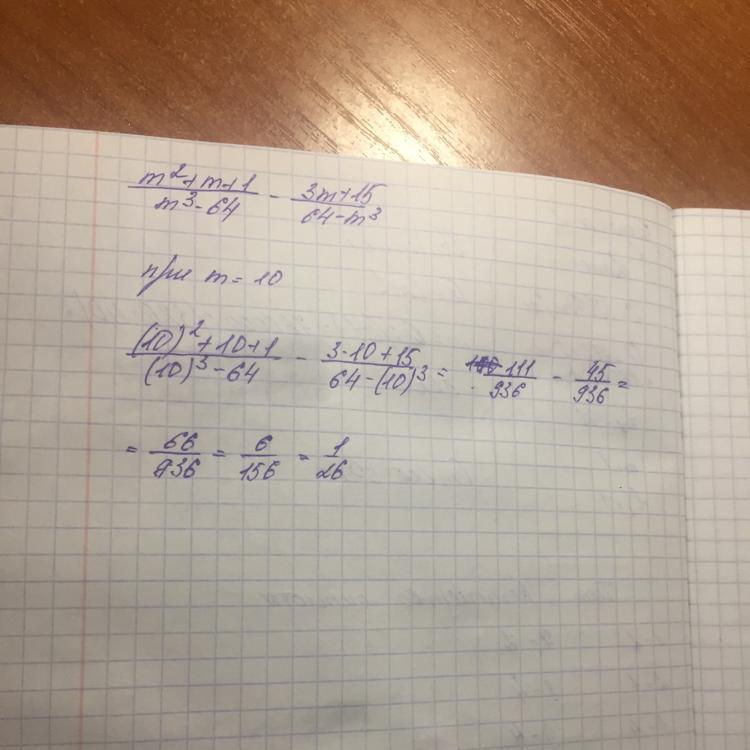 (m²+m+1)/(m³-64) - (3m+15)/(64-m³)
при m=10
((10)²+10+1)/((10)³-64) - (3·10+15)/(64-(10)³) = 111/936 - 45/936 =
= 66/936 = 6/156 = 1/26